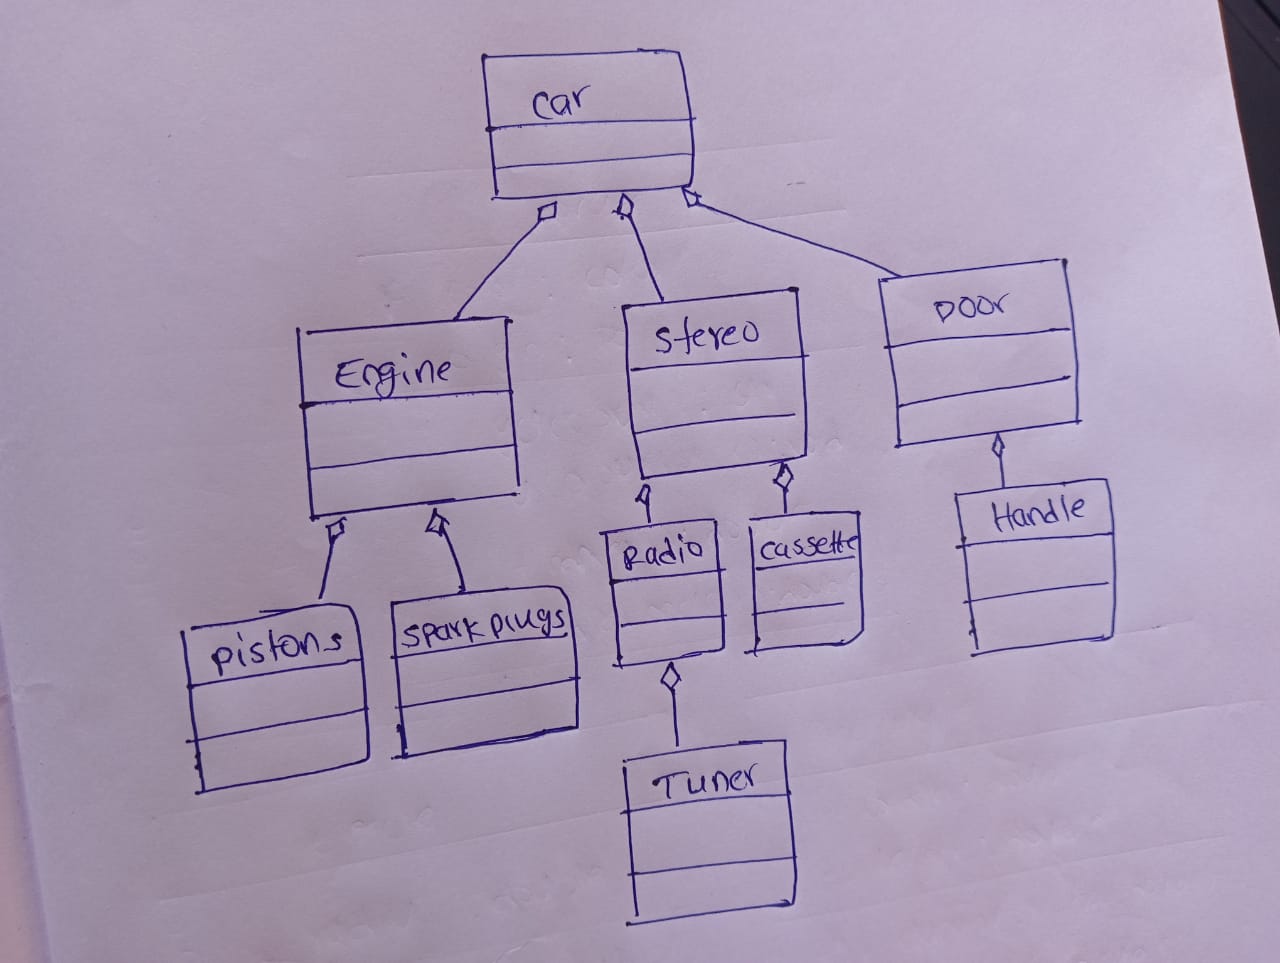 car
Engine
stereo
Door
pistons
spark plugs
Radio
cassette
Handle
Tuner